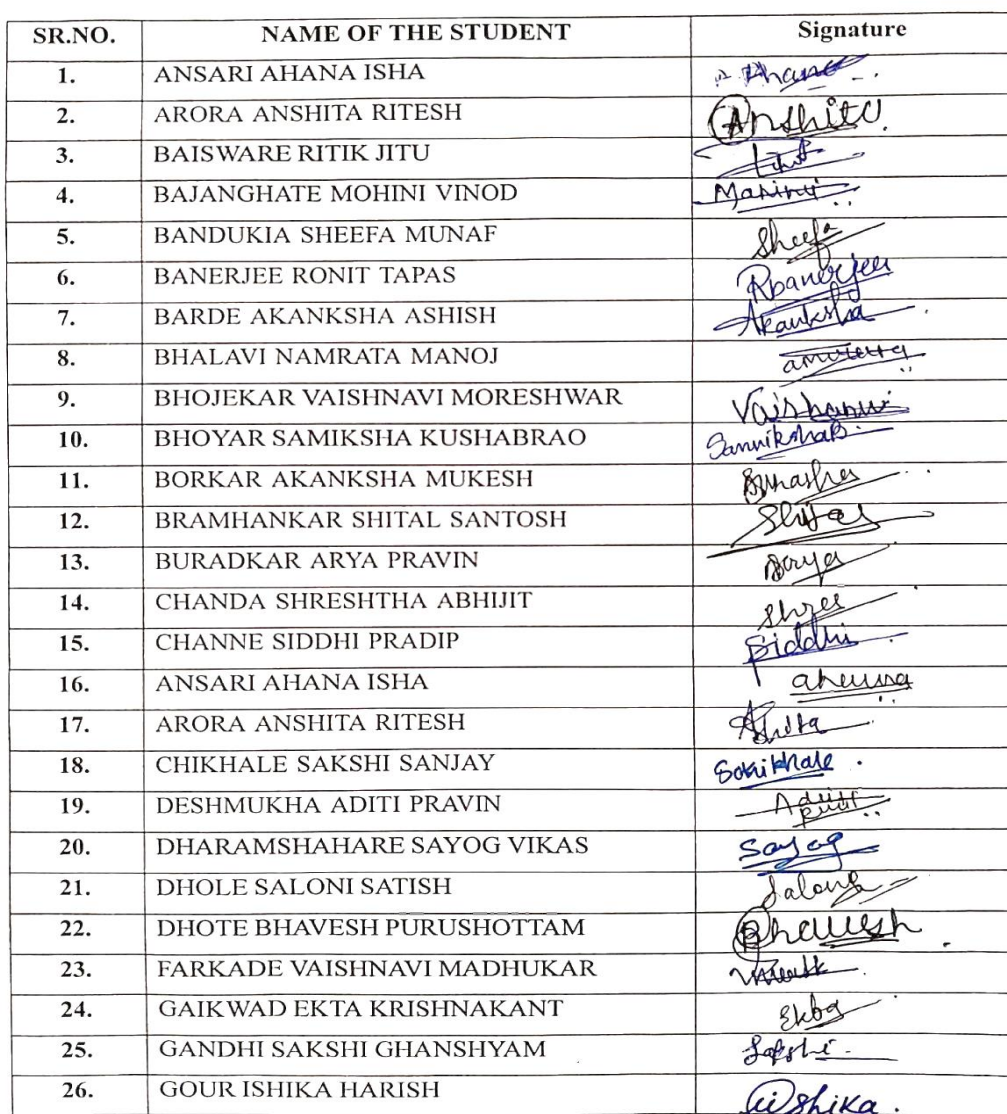 SR.NO. NAME OF THE STUDENT Signature
1. ANSARI AHANA ISHA
2. ARORA ANSHITA RITESH Anshita
3. BAISWARE RITIK JITU
4. BAJANGHATE MOHINI VINOD
5. BANDUKIA SHEEFA MUNAF Sheefa
6. BANERJEE RONIT TAPAS Rbanerjee
7. BARDE AKANKSHA ASHISH Akanksha
8. BHALAVI NAMRATA MANOJ
9. BHOJEKAR VAISHNAVI MORESHWAR
10. BHOYAR SAMIKSHA KUSHABRAO
11. BORKAR AKANKSHA MUKESH
12. BRAMHANKAR SHITAL SANTOSH Shital
13. BURADKAR ARYA PRAVIN Arya
14. CHANDA SHRESHTHA ABHIJIT Shree
15. CHANNE SIDDHI PRADIP Siddhi
16. ANSARI AHANA ISHA
17. ARORA ANSHITA RITESH
18. CHIKHALE SAKSHI SANJAY
19. DESHMUKHA ADITI PRAVIN
20. DHARAMSHAHARE SAYOG VIKAS Sayog
21. DHOLE SALONI SATISH
22. DHOTE BHAVESH PURUSHOTTAM Bhavesh
23. FARKADE VAISHNAVI MADHUKAR
24. GAIKWAD EKTA KRISHNAKANT Ekta
25. GANDHI SAKSHI GHANSHYAM Sakshi
26. GOUR ISHIKA HARISH